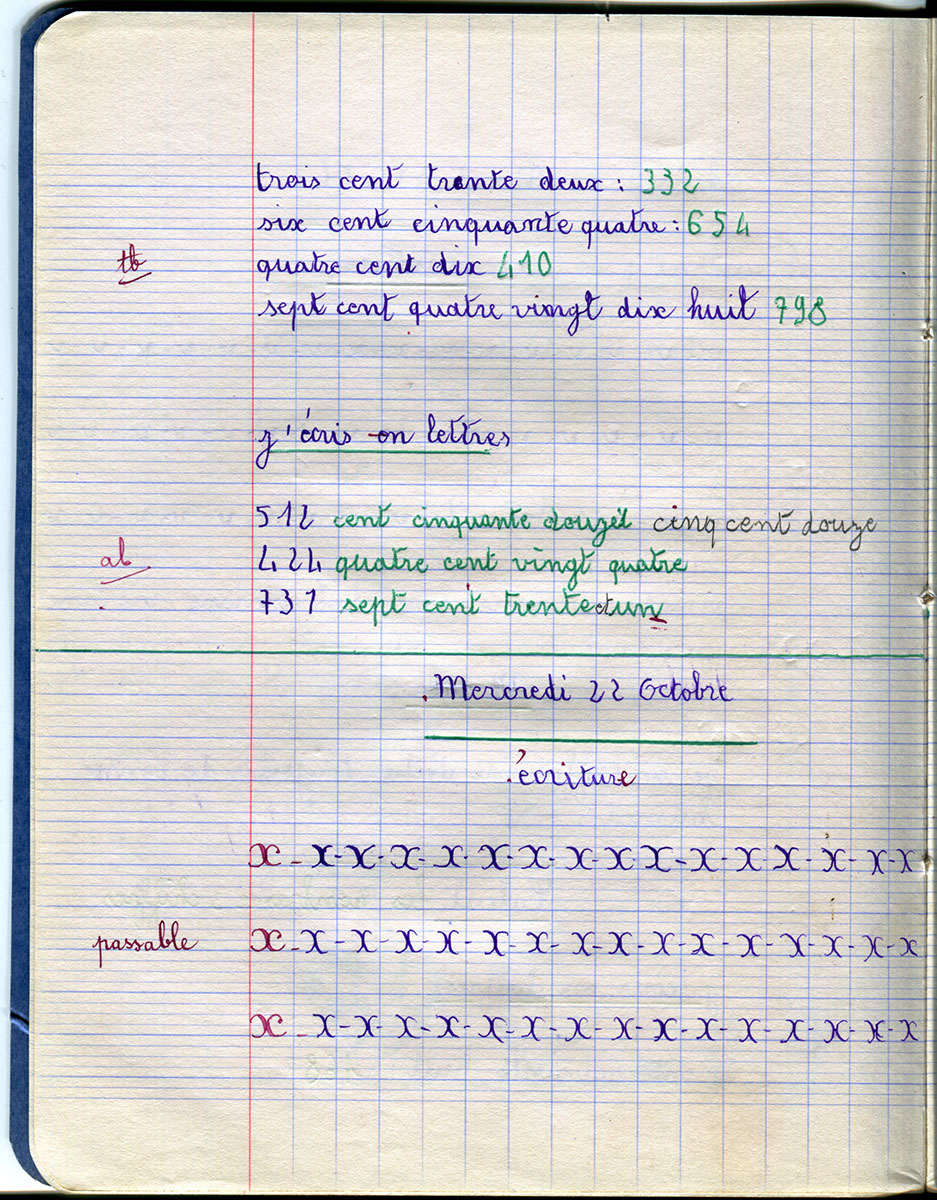 trois cent trente deux : 332
six cent cinquante quatre : 654
tb
quatre cent dix 410
sept cent quatre vingt dix huit 798
j'écris en lettres
512 cent cinquante douze cinq cent douze
ab
424 quatre cent vingt quatre
731 sept cent trente et un
Mercredi 22 Octobre
écriture
x - x - x - x - x - x - x - x - x - x - x - x - x - x - x - x
passable
x - x - x - x - x - x - x - x - x - x - x - x - x - x - x - x
x - x - x - x - x - x - x - x - x - x - x - x - x - x - x